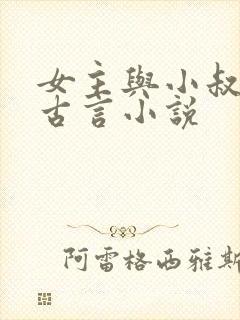 女主與小叔
古言小說
阿雷格西雅斯